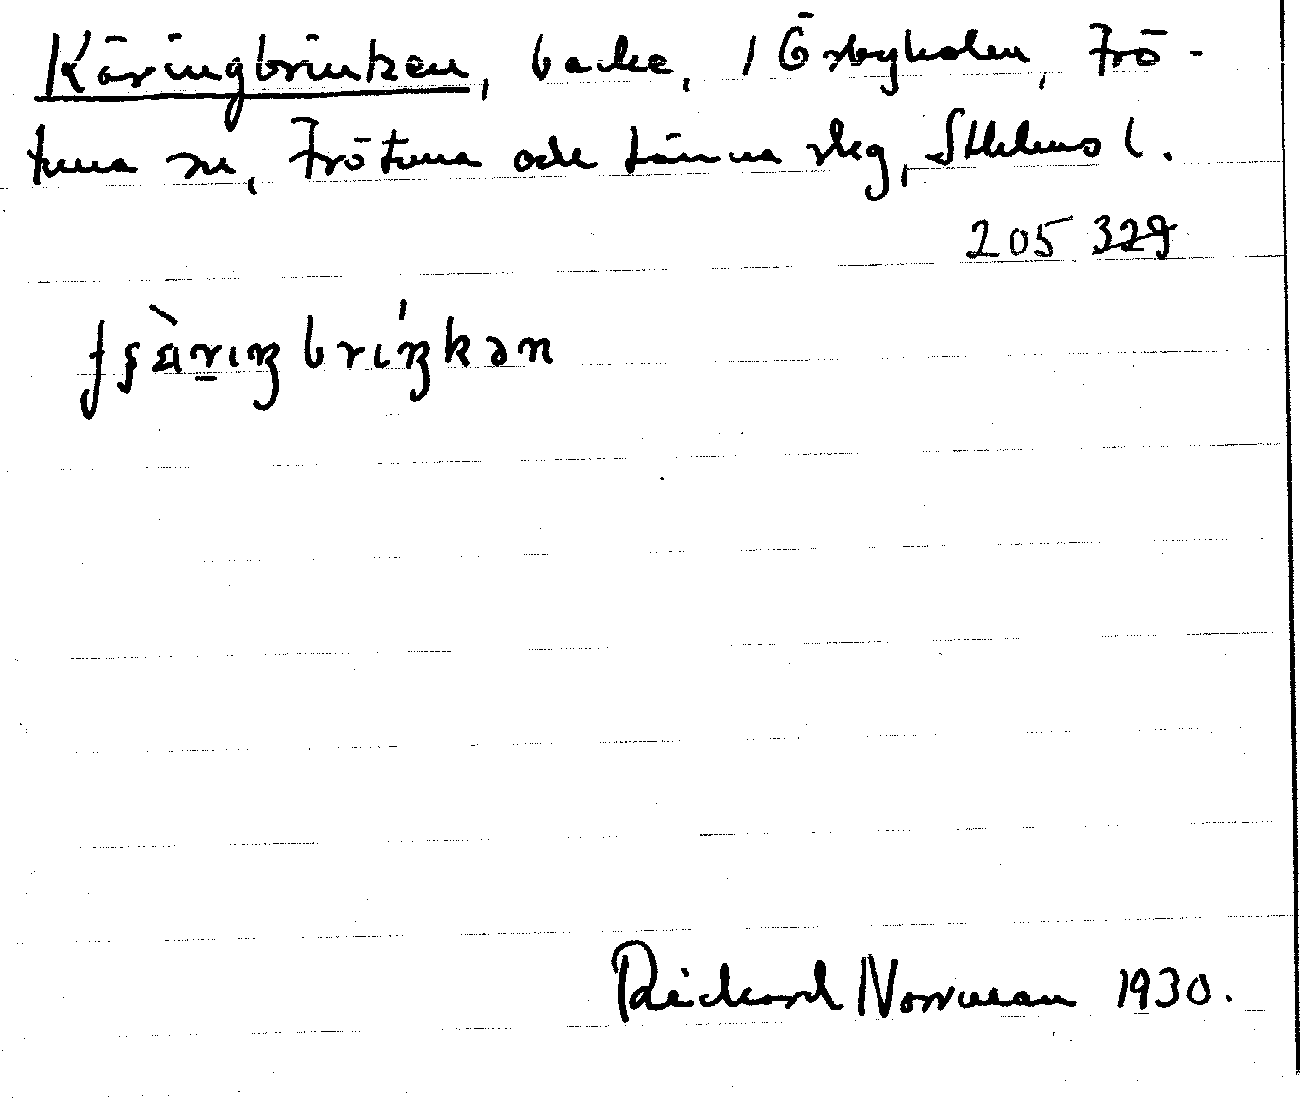 Käringbrinken, backe, 1 Örbyholm, Frö-
tuna sn, Frötuna och Länna skg, Sthlms l.
205 329
Rickard Norrman 1930.